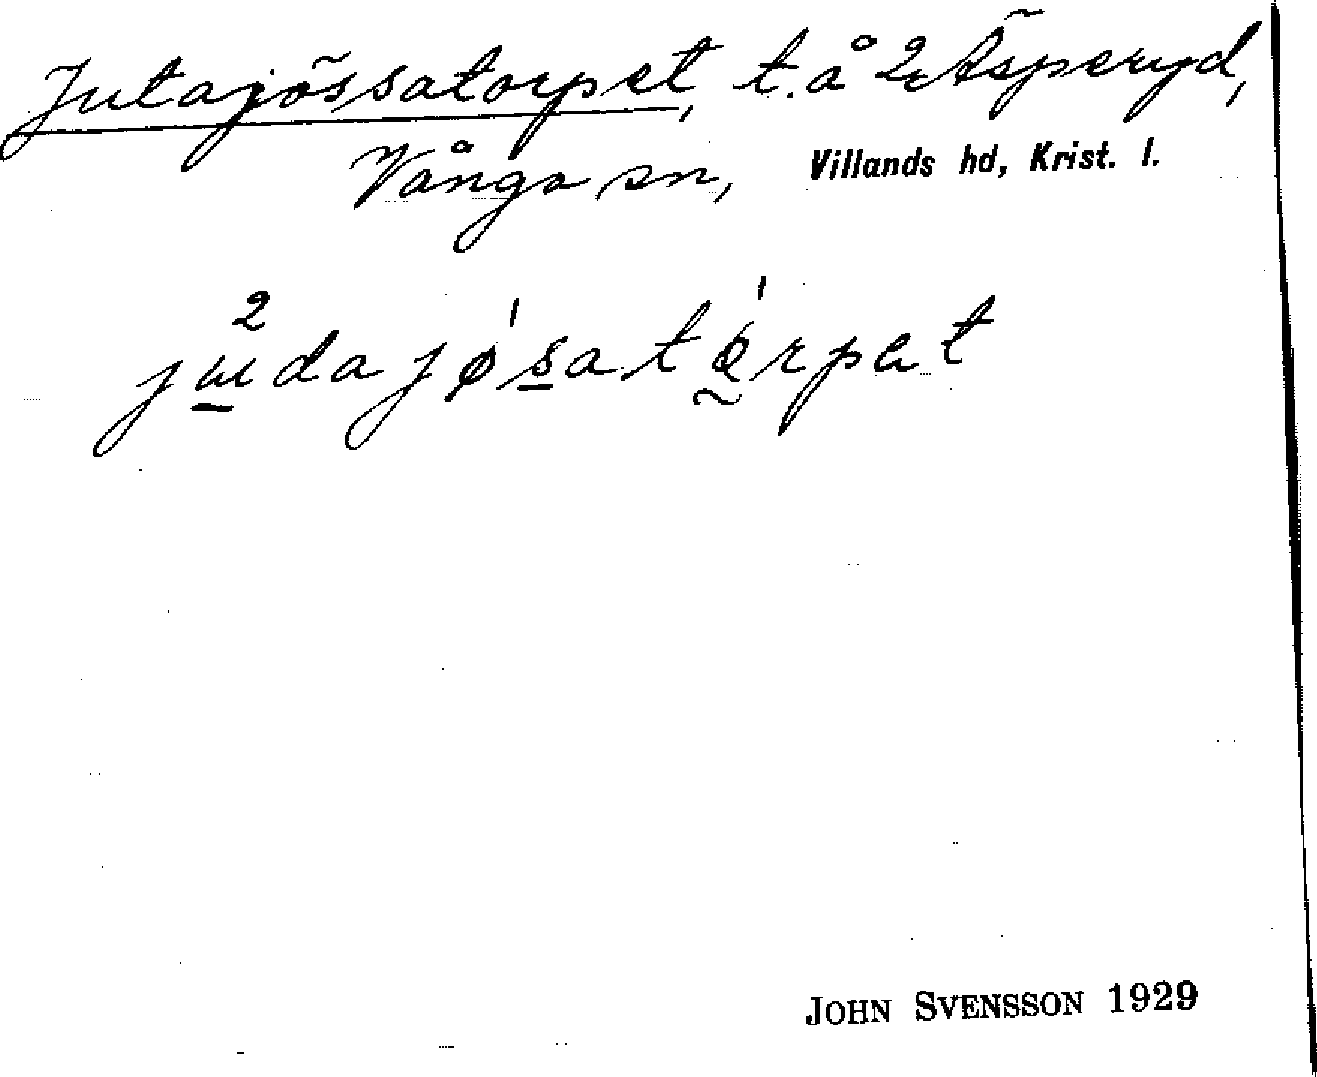 Jutajössatorpet, t. å 2 Äsperyd,
Vånga sn, Villands hd, Krist. l.
judajøsatǫrpet
JOHN SVENSSON 1929